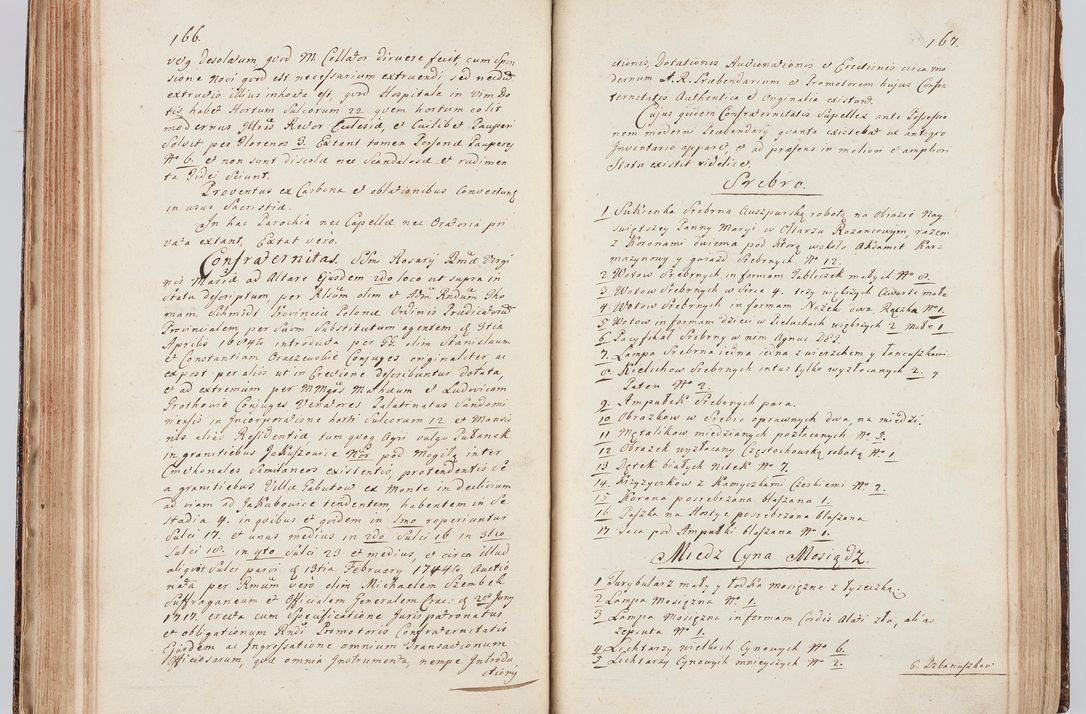 166.
desolatum, quod M. Collator diruere fecit, cum Spon
sione novi quod est necessarium extruendi sed necdum
extructio illius inhoata est, quod Hospitale in vim Do
tis habet Hortum Sulcorum 22. quem hortum colit
modernus Illris Rector Ecclesiæ, et Cuilibet Pauperi
Solvit per Florenos 3. Extant tamen Personæ Pauperes
No 6. et non sunt discolæ nec Scandalosæ et rudimen
ta Fidei Sciunt.
Proventus ex Carbona et oblationibus Convertunt
in usus Sacristiæ.
In hac Parochia nec Capellæ nec Oratoria pri
vata extant, Extat vero.
Confraternitas SSmi Rosarij Bmæ Virgi
nis Mariæ ad Altare Ejusdem 2do loco ut supra in
Statu descriptum per olim et Rndum Tho
mam Schmidt Provinciæ Poloniæ Ordinis Prædicatorum
Provincialem per suum Substitutum agentem 3tia
Aprilis introducta per olim Stanislaum
et Constantiam Conjuges, originaliter, ac
ex post per alios ut in Erectione describuntur dotata,
et ad extremum per MMgos Mathæum et Ludovicam
Grothowie Conjuges Venatores Palatinatus Sandomi
riensis in Incorporatione horti Sulcorum 12 et Mansio
nis alias Residentiæ, tum quoq Agri vulgo Pułanek
in granitiebus Jakuszowie pod Mogiłą inter
Cmethonales Similaneos existentis, protendentis se
a granitiebus Villæ Gabutow ex Monte in declivium
ad viam ad Jakubowice tendentem, habentem in se
Stadia 4. in quibus et quidem in 1mo reperiuntur
Sulci 17. et unus medius in 2do Sulci 16 in 3tio
Sulci 18. in 4to Sulci 23 et medius, et circa illud
aliquot Sulci parvi 13tia February 1744to Auctio
nata per Rmum vero olim Michaelem Szembek
Suffraganeum et Officialem Generalem Crac: Juny
1717. erecta cum Specificatione Juris patronatus
et obligationum Rndi Promotoris Confraternitatis
Ejusdem ac Ingrossatione omnium Transactionum
Officiosarum, quæ omnia Instrumenta, nempe Introdu
ctionis
167.
ctionis, Dotationis Auctionationis et Erectionis circa mo
dernum A. R. Præbendarium et Promotorem hujus Confra
ternitatis Authentica et Originalia existunt.
Cujus quidem Confraternitatis Supellex ante Possessio
nem moderni Præbendarij quanta existebat ex antiquo
Inventario apparet, et ad præsens in meliori et ampliori
Statu existit videlicet.
Srebro.
1 Sukienka Srebrna Auszpurską robotą na Obrazie Nay
świętszey Panny Maryi w Ołtarzu Rożancowym, razem
z Koronami dwiema pod ktorą wokoło Aksamit Kar
mazynowy y gwiazd Srebrnych No 12.
2 Wotow Srebrnych in formam Tabliczek małych No 8.
3 Wotow Srebrnych w Serce 4. trzy większych Czwarte małe
4. Wotow Srebrnych in formam Nożek dwa Rączka No 1.
5 Wotow in formam dzieci w Pieluchach większych 2 Małe 1
6 Pacyfikał Srebrny w nim Agnus DEJ.
7. Lampa Srebrna iedna z wierzchem y łancuszkami.
8. Kielichow Srebrnych intus tylko wyzłacanych 2. y
Paten No 2.
9. Ampułek Srebrnych para.
10 Obrazkow w Srebro oprawnych dwa, na miedzi.
11 Metalikow miedzianych pozłacanych No 3.
12 Obrazek wyzłacany Częstochowską robotą No 1
13 Dętek białych Nitek No 7.
14. Krzyżyczkow z Kamyczkami Czeskiemi No 2.
15 Korona posrebrzana blaszana 1.
16 Puszka na Hostye posrebrzana blaszana
17 Taca pod Ampułki blaszana No 1.
Miedz Cyna Mosiądz.
1 Turybularz mały y łodka mosiężne z łyzeczką.
2 Lampa Mosiężna No 1.
3 Lampa Mosiężna in formam Cordis Alati zła, albo
zepsuta No 1.
4 Lichtarzy wielkich Cynowych No 6.
5 Lichtarzy Cynowych mnieyszych No 2.
6. Dzbanuszkow